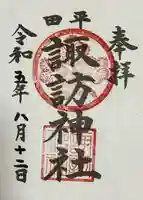 奉拝
平田
諏訪神社
令和五年八月十二日